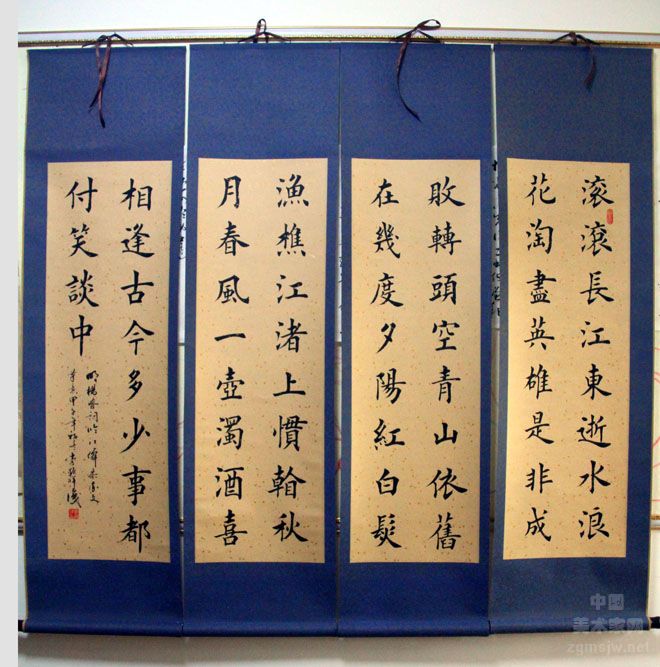 滚滾長江東逝水浪
花淘盡英雄是非成
敗轉頭空青山依舊
在幾度夕陽紅白髮
漁樵江渚上慣翰秋
月春風一壺濁酒喜
相逢古今多少事都
付笑談中
中国
美术家网
zgmsjw.net